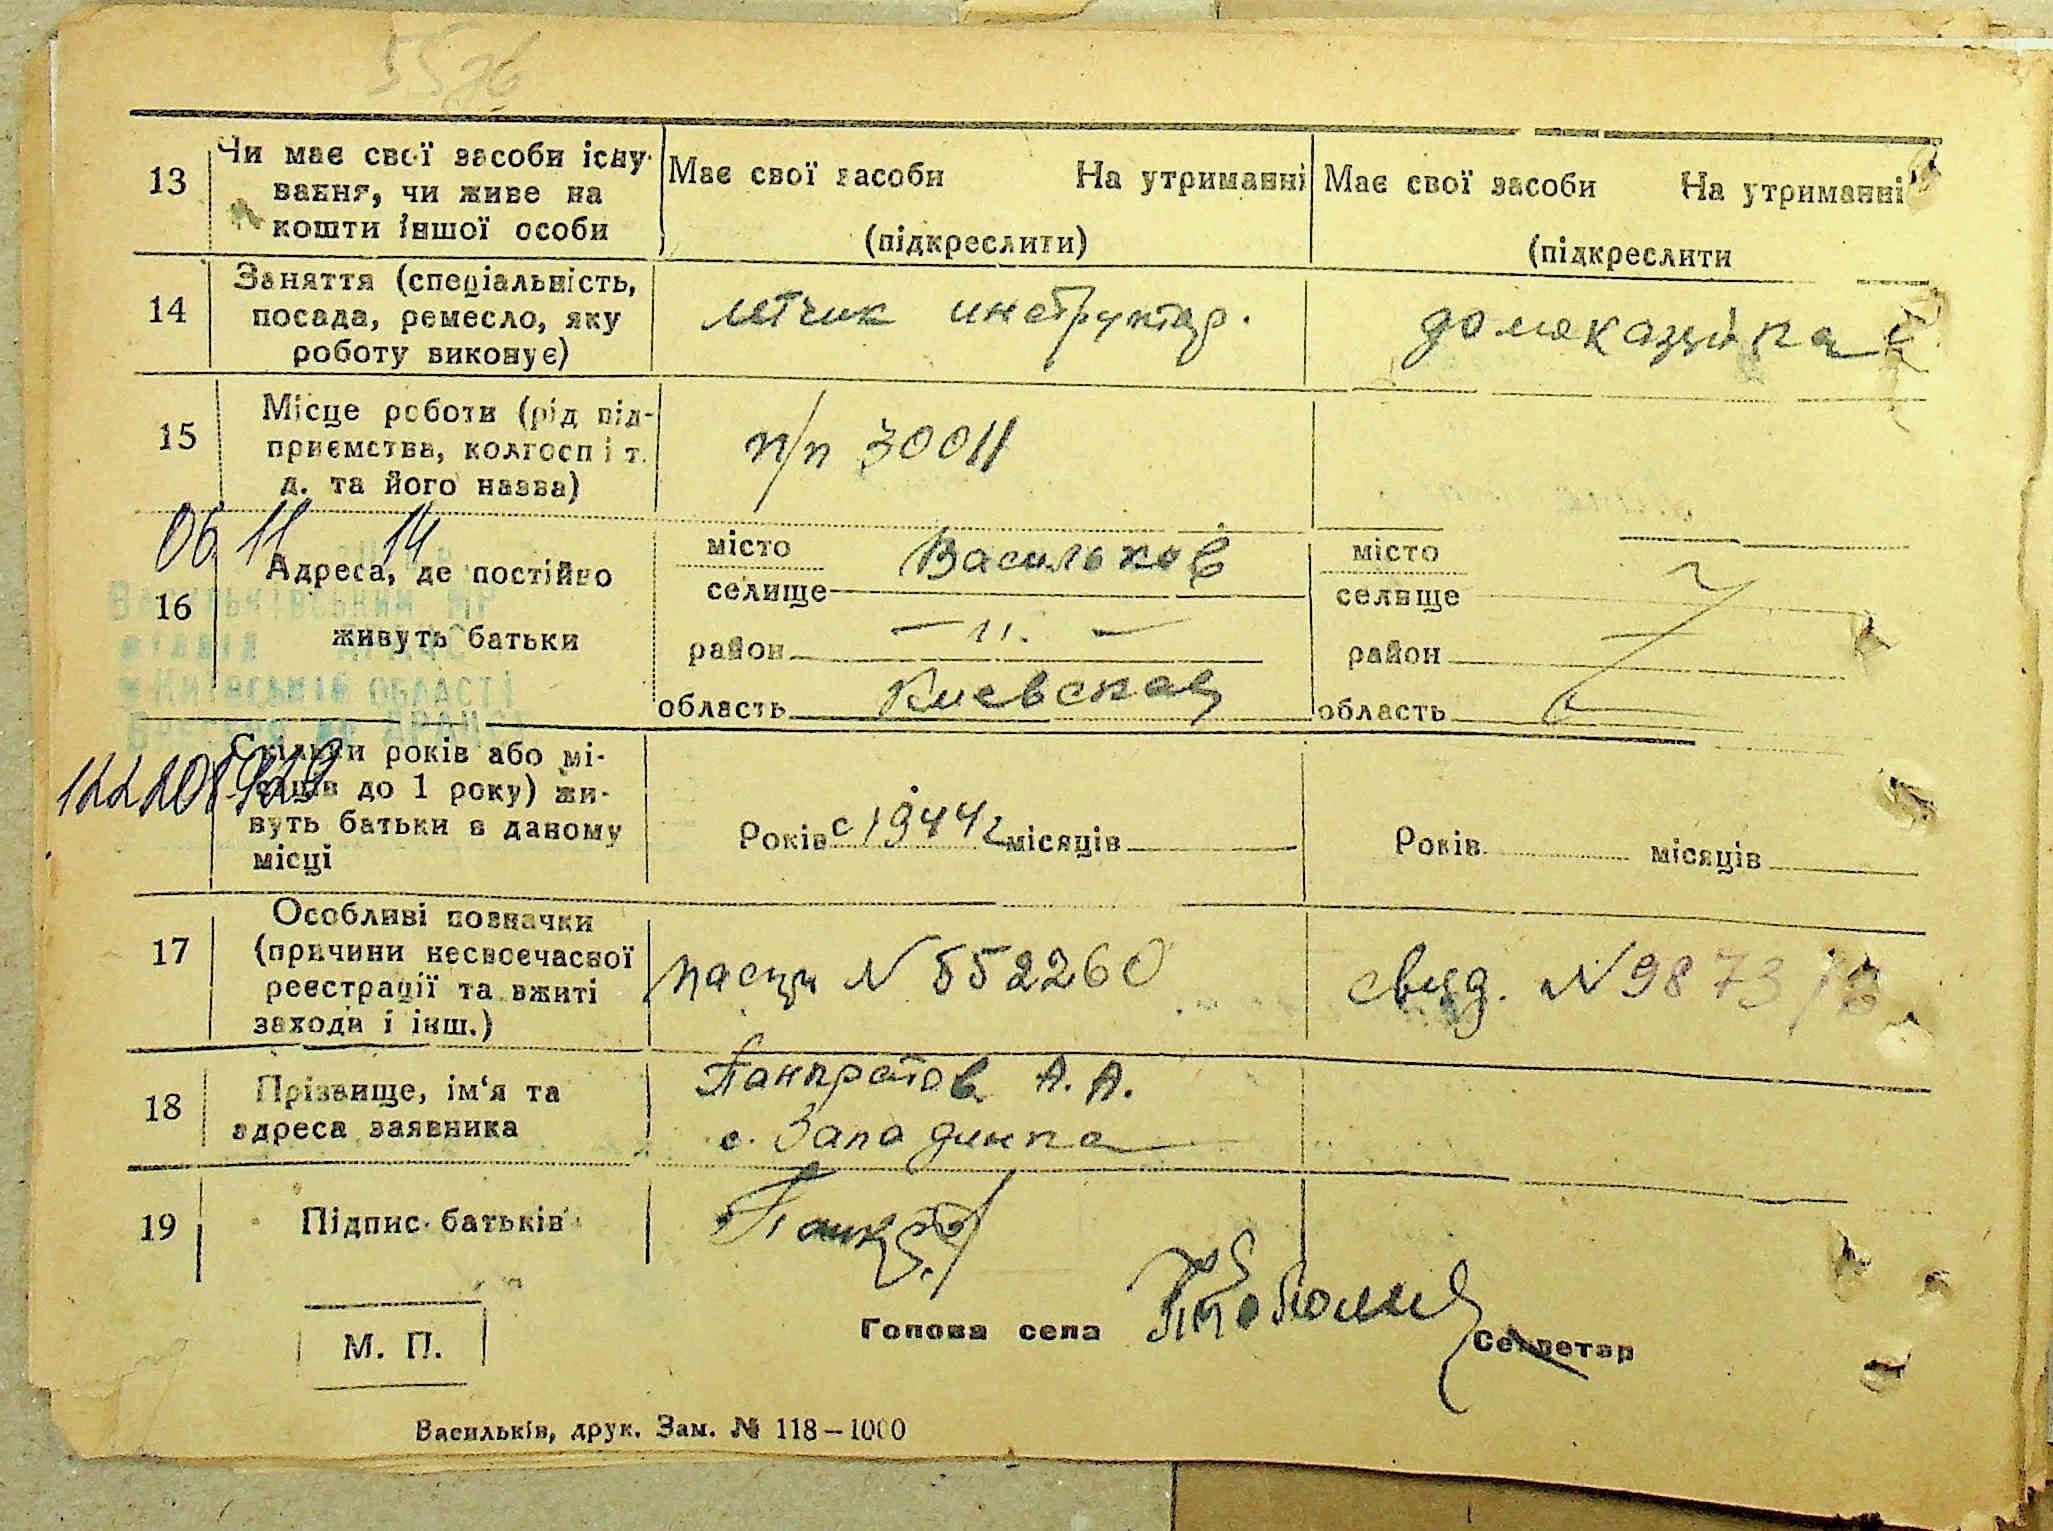 13 Чи має свої засоби існу-
вання, чи живе на
кошти іншої особи
Має свої засоби На утриманні
(підкреслити)
Має свої засоби На утриманні
(підкреслити
14 Заняття (спеціальність,
посада, ремесло, яку
роботу виконує)
летчик инструктор.
домохазяйка
15 Місце роботи (рід під-
приємства, колгосп і т.
д. та його назва)
п/п 30011
06 11 14
16 Адреса, де постійно
живуть батьки
місто
селище Васильков
район — 11. —
область Киевская
місто
селище
район
область
Васильківський МР
відділ
Київській ОБЛАСТІ
122208929
Скільки років або мі-
сяців до 1 року) жи-
вуть батьки в даному
місці
Років с 1944 г місяців
Років місяців
17 Особливі позначки
(причини несвоєчасної
реєстрації та вжиті
заходи і інш.)
пасп N 552260
свид. N 9873
18 Прізвище, ім'я та
адреса заявника
Панкратов А. А.
с. Западинка
19 Підпис батьків
Панкр
М. П.
Голова села Секретар
Васильків, друк. Зам. № 118—1000